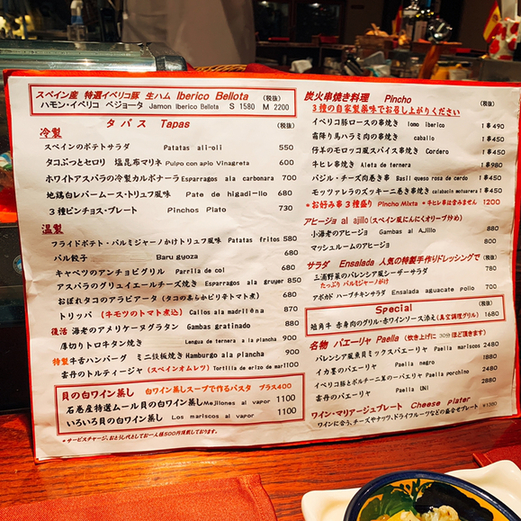 スペイン産 特選イベリコ豚 生ハム Iberico Bellota (税抜)
ハモン・イベリコ ベジョータ Jamon Iberico Bellota S 1580 M 2200
タパス Tapas (税抜)
冷製
スペインのポテトサラダ Patatas ali-oli 550
タコぶつとセロリ 塩昆布マリネ Pulpo con apio Vinagreta 600
ホワイトアスパラの冷製カルボナーラ Esparragos ala carbonara 700
地鶏白レバームース・トリュフ風味 Pate de higadillo 680
3種ピンチョス・プレート Pinchos Plato 730
温製
フライドポテト・パルミジャーノかけトリュフ風味 Patatas fritos 580
バル餃子 Baru gyoza
キャベツのアンチョビグリル Parrella de col
アスパラのグリュイエールチーズ焼き Esparragos ala gruyer 850
おぼれタコのアラビアータ (タコの柔らかピリ辛トマト煮)
トリッパ (牛モツのトマト煮込) Callos ala madrileña
復活 海老のアメリケーヌグラタン Gambas gratinado 880
厚切りトロ牛タン焼き Lengua de ternera a la plancha
特製 牛舌ハンバーグ ミニ鉄板焼き Hamburgo ala plancha 900
雲丹のトルティージャ (スペインオムレツ) Tortilla de erizo de mar
貝の白ワイン蒸し 白ワイン蒸しスープで作るパスタ プラス400
石巻産特選ムール貝の白ワイン蒸し Mejilones al vapor 1100
いろいろ貝の白ワイン蒸し Los mariscos al vapor 1100
*サービスチャージ、おとうし代としてお一人様500円頂戴しております。
炭火串焼き料理 Pincho (税抜)
3種の自家製薬味でお召し上がりください
イベリコ豚ロースの串焼き lomo iberico 1本490
霜降り馬ハラミ肉の串焼き caballo 1本450
仔羊のモロッコ風スパイス串焼き Cordero 1本450
牛ヒレ串焼き Aleta de ternera 1本980
バジル・チーズ肉巻き串焼き Basil queso rosa de cerdo 1本450
モッツァレラのズッキーニ巻き串焼き calabacin motsarera 1本450
*お好み串3種盛り Pincho Mixta *牛ヒレ串は含みません 1200
アヒージョ al ajillo (スペイン風にんにくオリーブ炒め)
小海老のアヒージョ Gambas al Ajillo 880
マッシュルームのアヒージョ 800
サラダ Ensalada 人気の特製手作りドレッシングで (税抜)
三浦野菜のバレンシア風シーザーサラダ 780
たっぷりパルミジャーノがけ
アボカド ハーブチキンサラダ Ensalada aguacate pollo 700
Special (税抜)
短角牛 赤身肉のグリル・赤ワインソース添え(真空調理グリル) 1680
名物 パエーリャ Paella (炊き上げに 30分 ほど頂きます)
バレンシア風魚貝ミックスパエーリャ Paella mariscos 2480
イカ墨のパエーリャ Paella negro
イベリコ豚とポルチーニ茸のパエーリャ Paella porchini
雲丹のパエーリャ Paella UNI 2880
ワイン・マリアージュプレート Cheese plater
ワインに合う、チーズやナッツ、ドライフルーツなどの盛合せプレート ¥1380